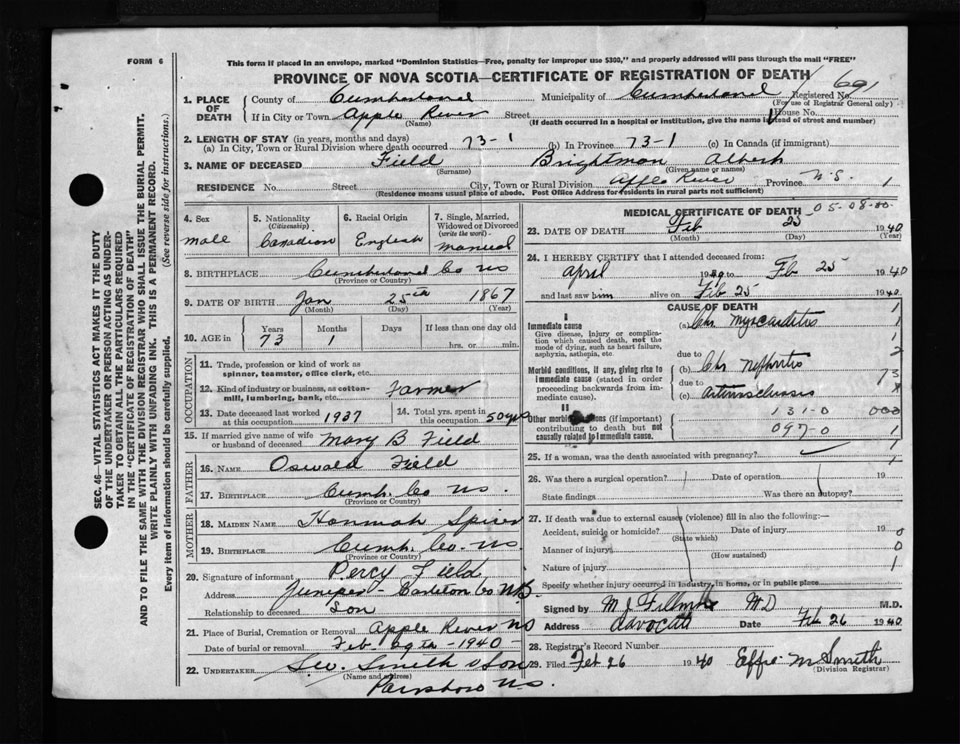 FORM 6
This form if placed in an envelope, marked "Dominion Statistics—Free, penalty for improper use $300," and properly addressed will pass through the mail "FREE"
PROVINCE OF NOVA SCOTIA—CERTIFICATE OF REGISTRATION OF DEATH
SEC. 46—VITAL STATISTICS ACT MAKES IT THE DUTY
OF THE UNDERTAKER OR PERSON ACTING AS UNDER-
TAKER TO OBTAIN ALL THE PARTICULARS REQUIRED
IN THE "CERTIFICATE OF REGISTRATION OF DEATH"
AND TO FILE THE SAME WITH THE DIVISION REGISTRAR WHO SHALL ISSUE THE BURIAL PERMIT.
WRITE PLAINLY WITH UNFADING INK. THIS IS A PERMANENT RECORD.
Every item of information should be carefully supplied. (See reverse side for instructions.)
1. PLACE OF DEATH
County of Cumberland Municipality of Cumberland Registered No. 691
(For use of Registrar General only)
If in City or Town Apple River Street House No.
(Name) (If death occurred in a hospital or institution, give the name instead of street and number)
2. LENGTH OF STAY (in years, months and days)
(a) In City, Town or Rural Division where death occurred 73-1 (b) In Province 73-1 (c) In Canada (if immigrant)
3. NAME OF DECEASED Field Brightman Albert
(Surname) (Given name or names)
RESIDENCE No. Street City, Town or Rural Division Apple River Province N.S. 1
(Residence means usual place of abode. Post Office Address for residents in rural parts not sufficient)
4. Sex
male
5. Nationality
(Citizenship)
Canadian
6. Racial Origin
English
7. Single, Married,
Widowed or Divorced
(write the word)
married
8. BIRTHPLACE Cumberland Co NS
(Province or Country)
9. DATE OF BIRTH Jan 25th 1867
(Month) (Day) (Year)
10. AGE in Years Months Days If less than one day old
73 1 hrs. or min.
OCCUPATION
11. Trade, profession or kind of work as
spinner, teamster, office clerk, etc.
12. Kind of industry or business, as cotton-
mill, lumbering, bank, etc. Farmer
13. Date deceased last worked
at this occupation 1937
14. Total yrs. spent in
this occupation 50 yrs
15. If married give name of wife
or husband of deceased Mary B Field
FATHER
16. NAME Oswald Field
17. BIRTHPLACE Cumb. Co NS.
MOTHER
18. MAIDEN NAME Hannah Spicer
19. BIRTHPLACE Cumb. Co. NS.
(Province or Country)
20. Signature of informant Percy Field
Address Juniper - Carleton Co NB.
Relationship to deceased Son
21. Place of Burial, Cremation or Removal Apple River NS
Date of burial or removal Feb 29th - 1940
22. UNDERTAKER Geo. Smith & Son
(Name and address)
Parrsboro N.S.
MEDICAL CERTIFICATE OF DEATH 05-08-00
23. DATE OF DEATH Feb 25 1940
(Month) (Day) (Year)
24. I HEREBY CERTIFY that I attended deceased from:
April 1939 to Feb 25 1940
and last saw him alive on Feb 25 1940
CAUSE OF DEATH
I
Immediate cause
Give disease, injury or complica-
tion which caused death, not the
mode of dying, such as heart failure,
asphyxia, asthenia, etc.
(a) Chr Myocarditis
due to
Morbid conditions, if any, giving rise to
immediate cause (stated in order
proceeding backwards from im-
mediate cause).
(b) Chr Nephritis
due to
(c) Arteriosclerosis
II
Other morbid conditions (if important)
contributing to death but not
causally related to immediate cause.
131-0
097-0
25. If a woman, was the death associated with pregnancy?
26. Was there a surgical operation? Date of operation 19
State findings Was there an autopsy?
27. If death was due to external causes (violence) fill in also the following:—
Accident, suicide or homicide? Date of injury 19
(State which)
Manner of injury
(How sustained)
Nature of injury
Specify whether injury occurred in industry, in home, or in public place
Signed by M J Fillmore MD M.D.
Address Advocate Date Feb 26 1940
28. Registrar's Record Number
29. Filed Feb 26 1940 Effie M Smith
(Division Registrar)